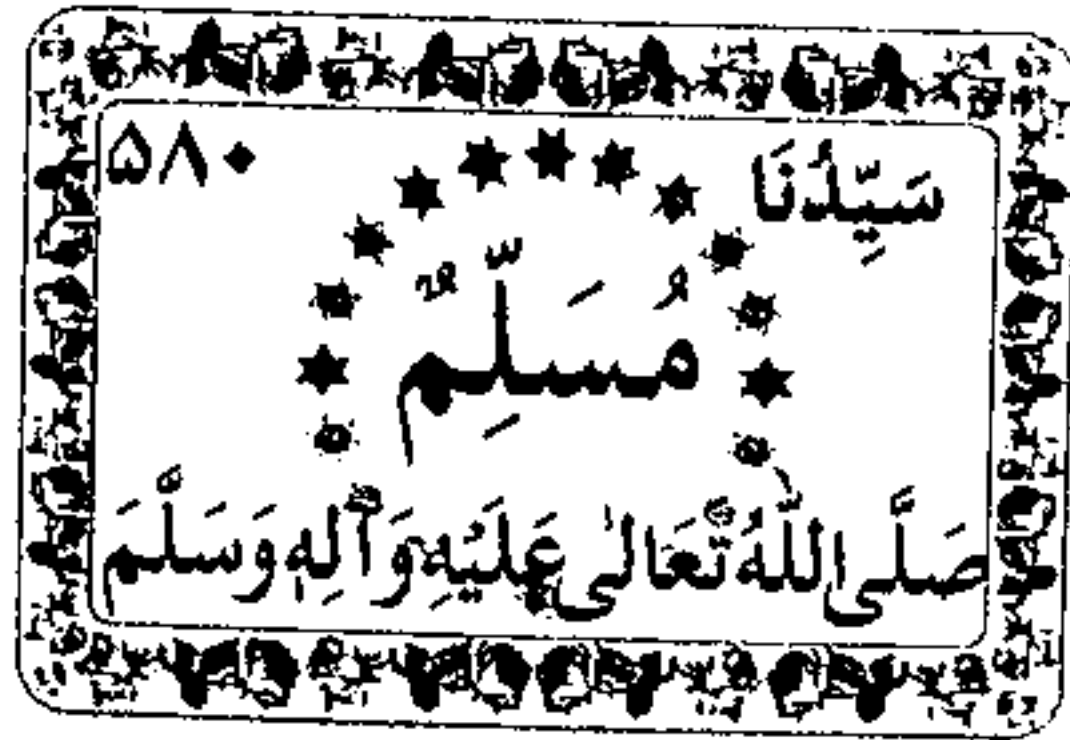 سَيِّدُنَا ۵۸۰
مُسَلِّمٌ
صَلَّى اللّٰهُ تَعَالٰى عَلَيْهِ وَآلِهٖ وَسَلَّمَ